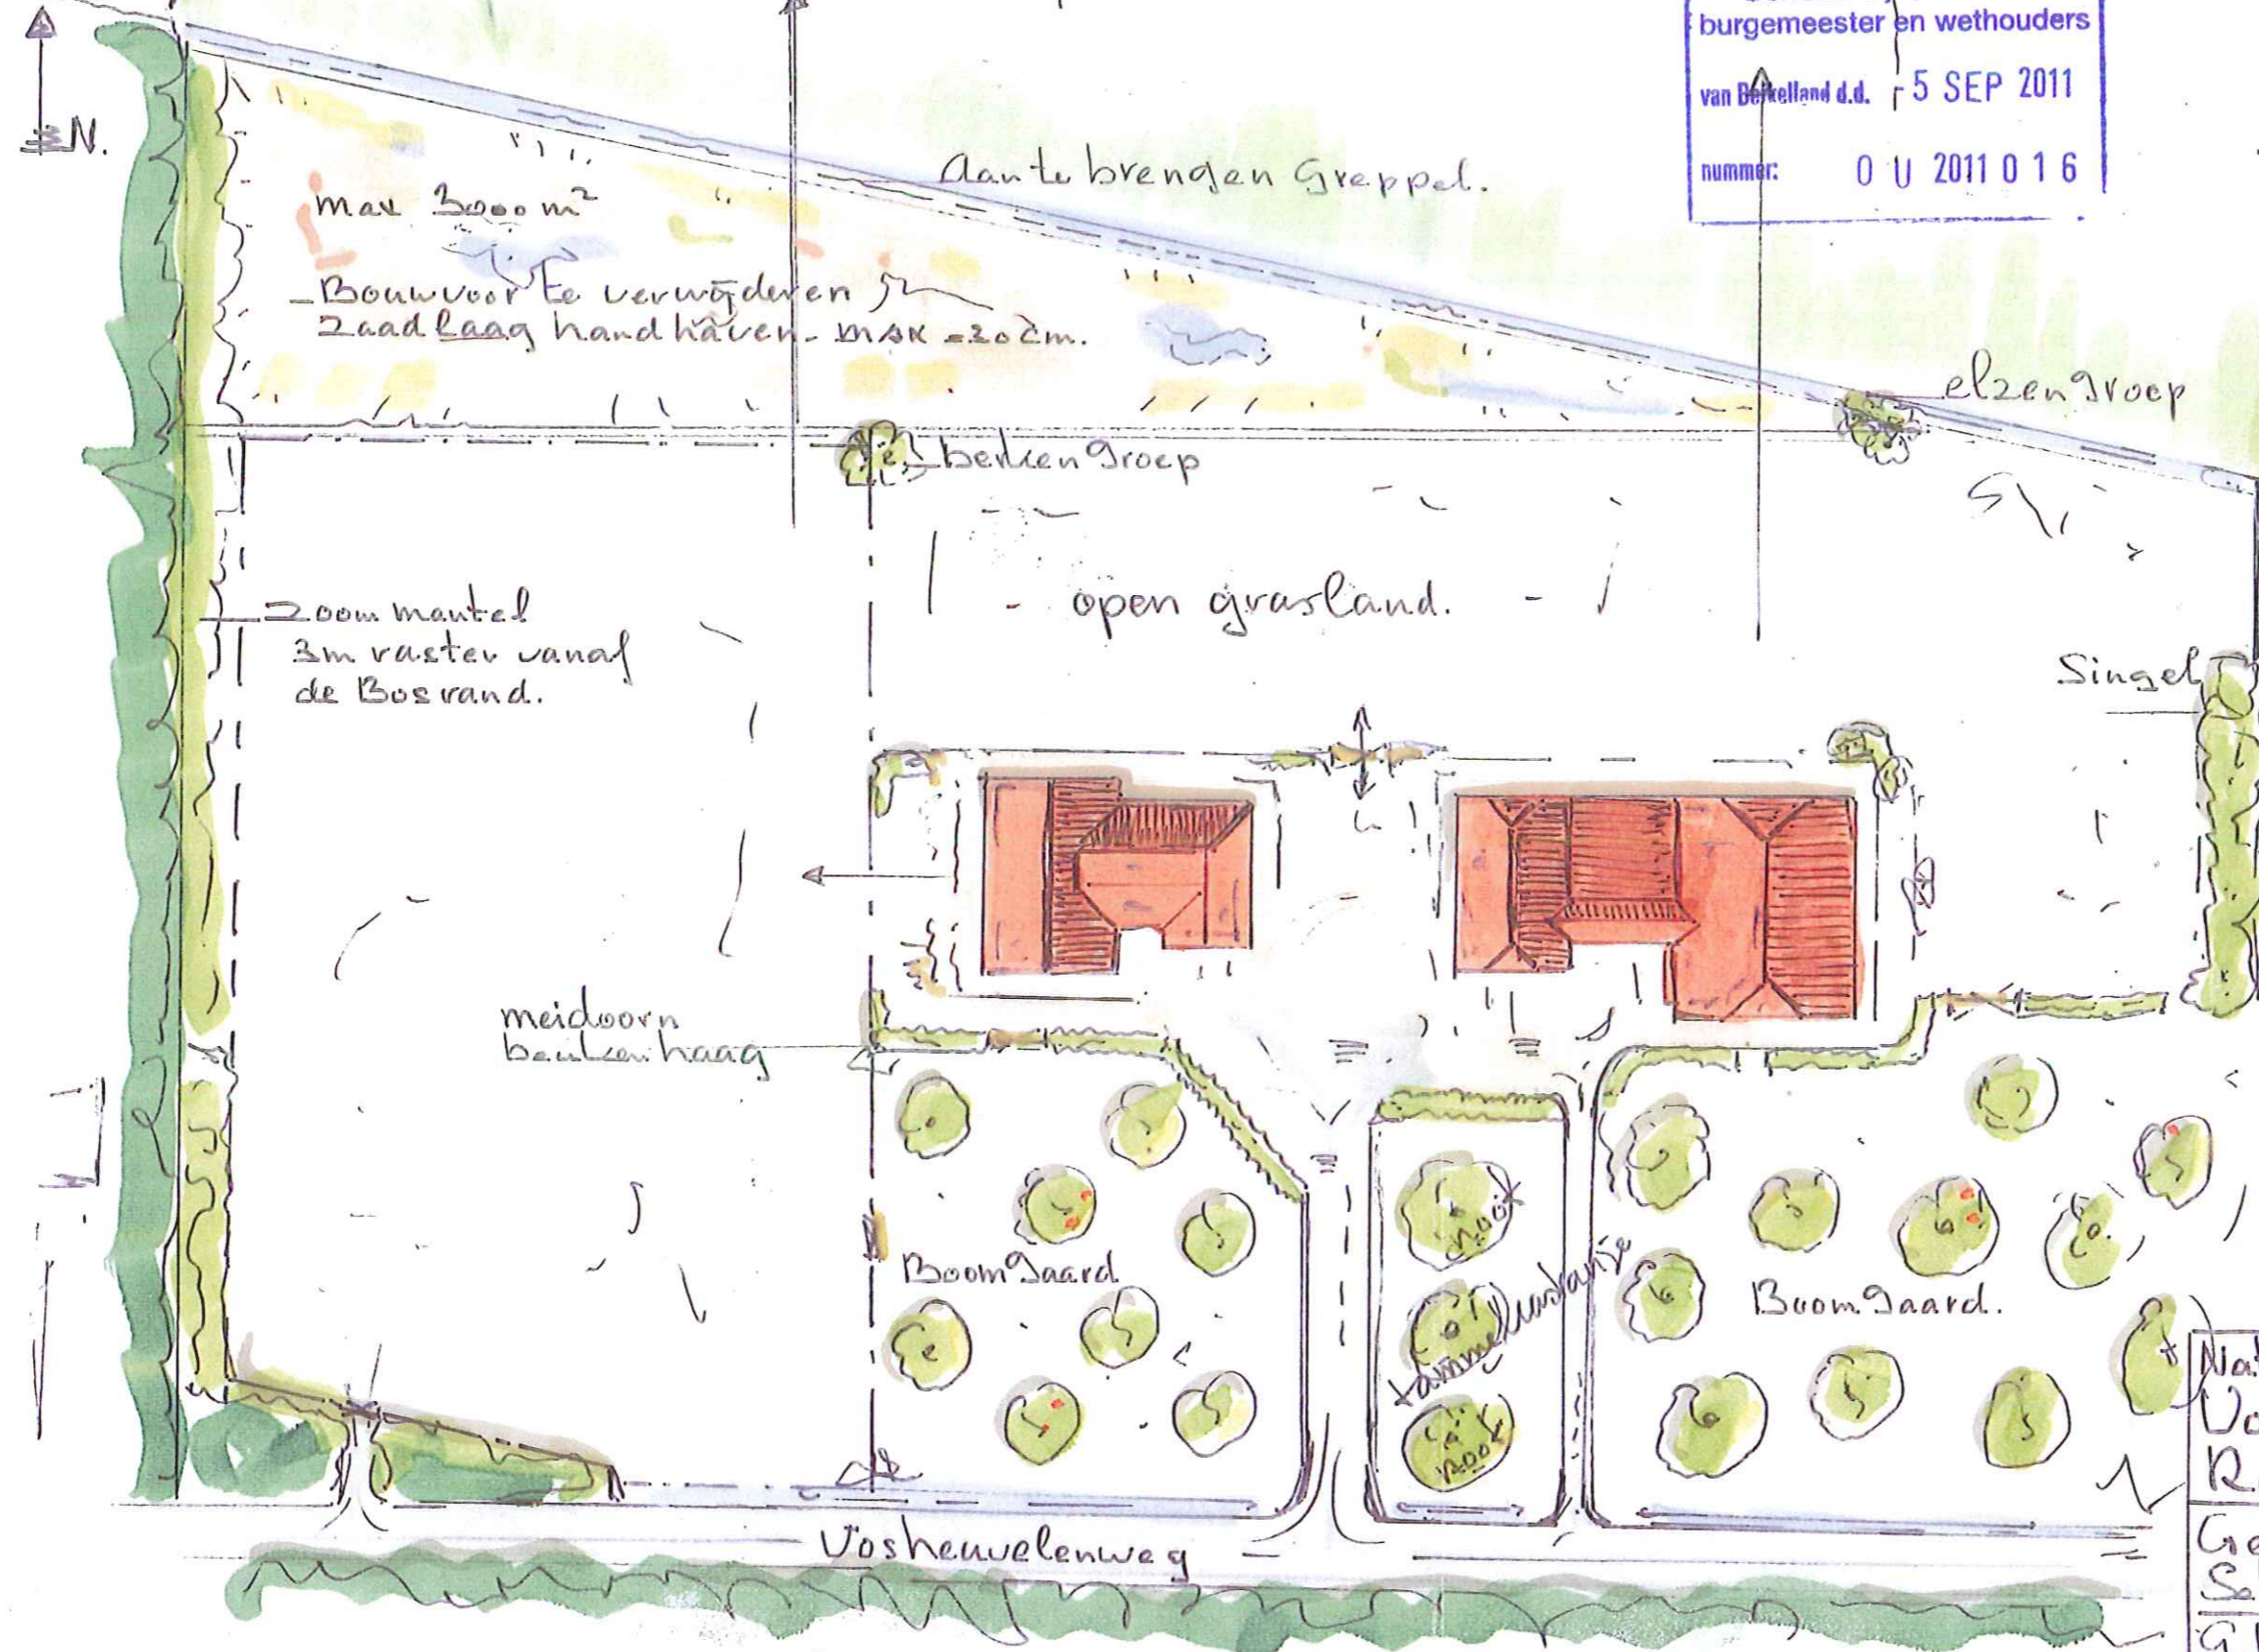 burgemeester en wethouders
van Berkelland d.d. - 5 SEP 2011
nummer: 0 U 2011 0 1 6
N.
Aan te brengen Greppel.
max 3000 m²
Bouwvoor te verwijderen
Zaadlaag handhaven - max = 30 cm.
elzen groep
berken groep
open grasland.
Zoom mantel
3m raster vanaf
de Bosrand.
Singel
meidoorn
beuken haag
Boomgaard
noot
tamme kastanje
noot
Boomgaard.
Vosheuvelenweg